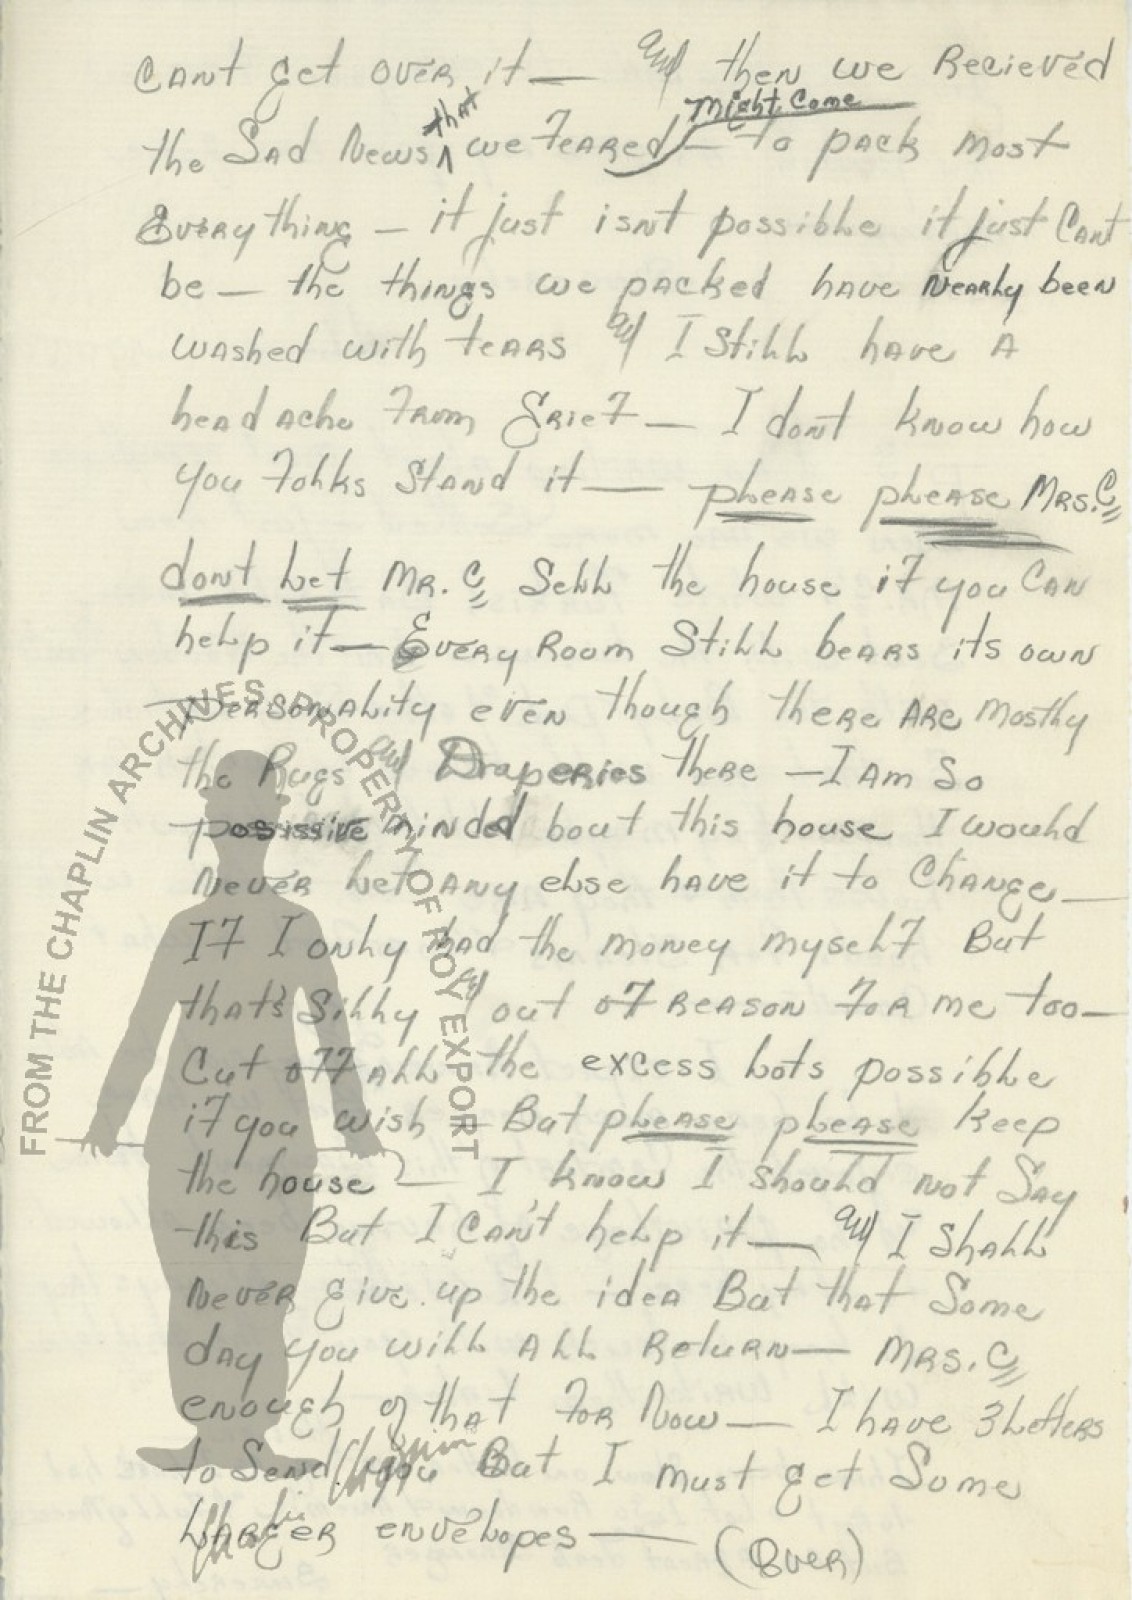 Cant get over it — and then we Recieved
the Sad News that we feared might come — to pack most
Everything — it just isnt possible it just Cant
be — the things we packed have nearly been
washed with tears and I Still have a
head ache from Grief — I dont know how
you folks stand it — please please Mrs. C
dont let Mr. C Sell the house if you Can
help it — Every Room Still bears its own
personality even though there are mostly
the Rugs and Draperies there — I am So
possissive minded bout this house I would
Never let any else have it to Change —
If I only had the money myself But
that's Silly and out of Reason for me too —
Cut off all the excess lots possible
if you wish — But please please keep
the house — I know I should not Say
this But I Can't help it — and I Shall
Never give up the idea But that Some
day you will all Return — Mrs. C
enough of that for Now — I have 3 letters
to Send you But I must get Some
Larger envelopes — (Over)
FROM THE CHAPLIN ARCHIVES PROPERTY OF ROY EXPORT